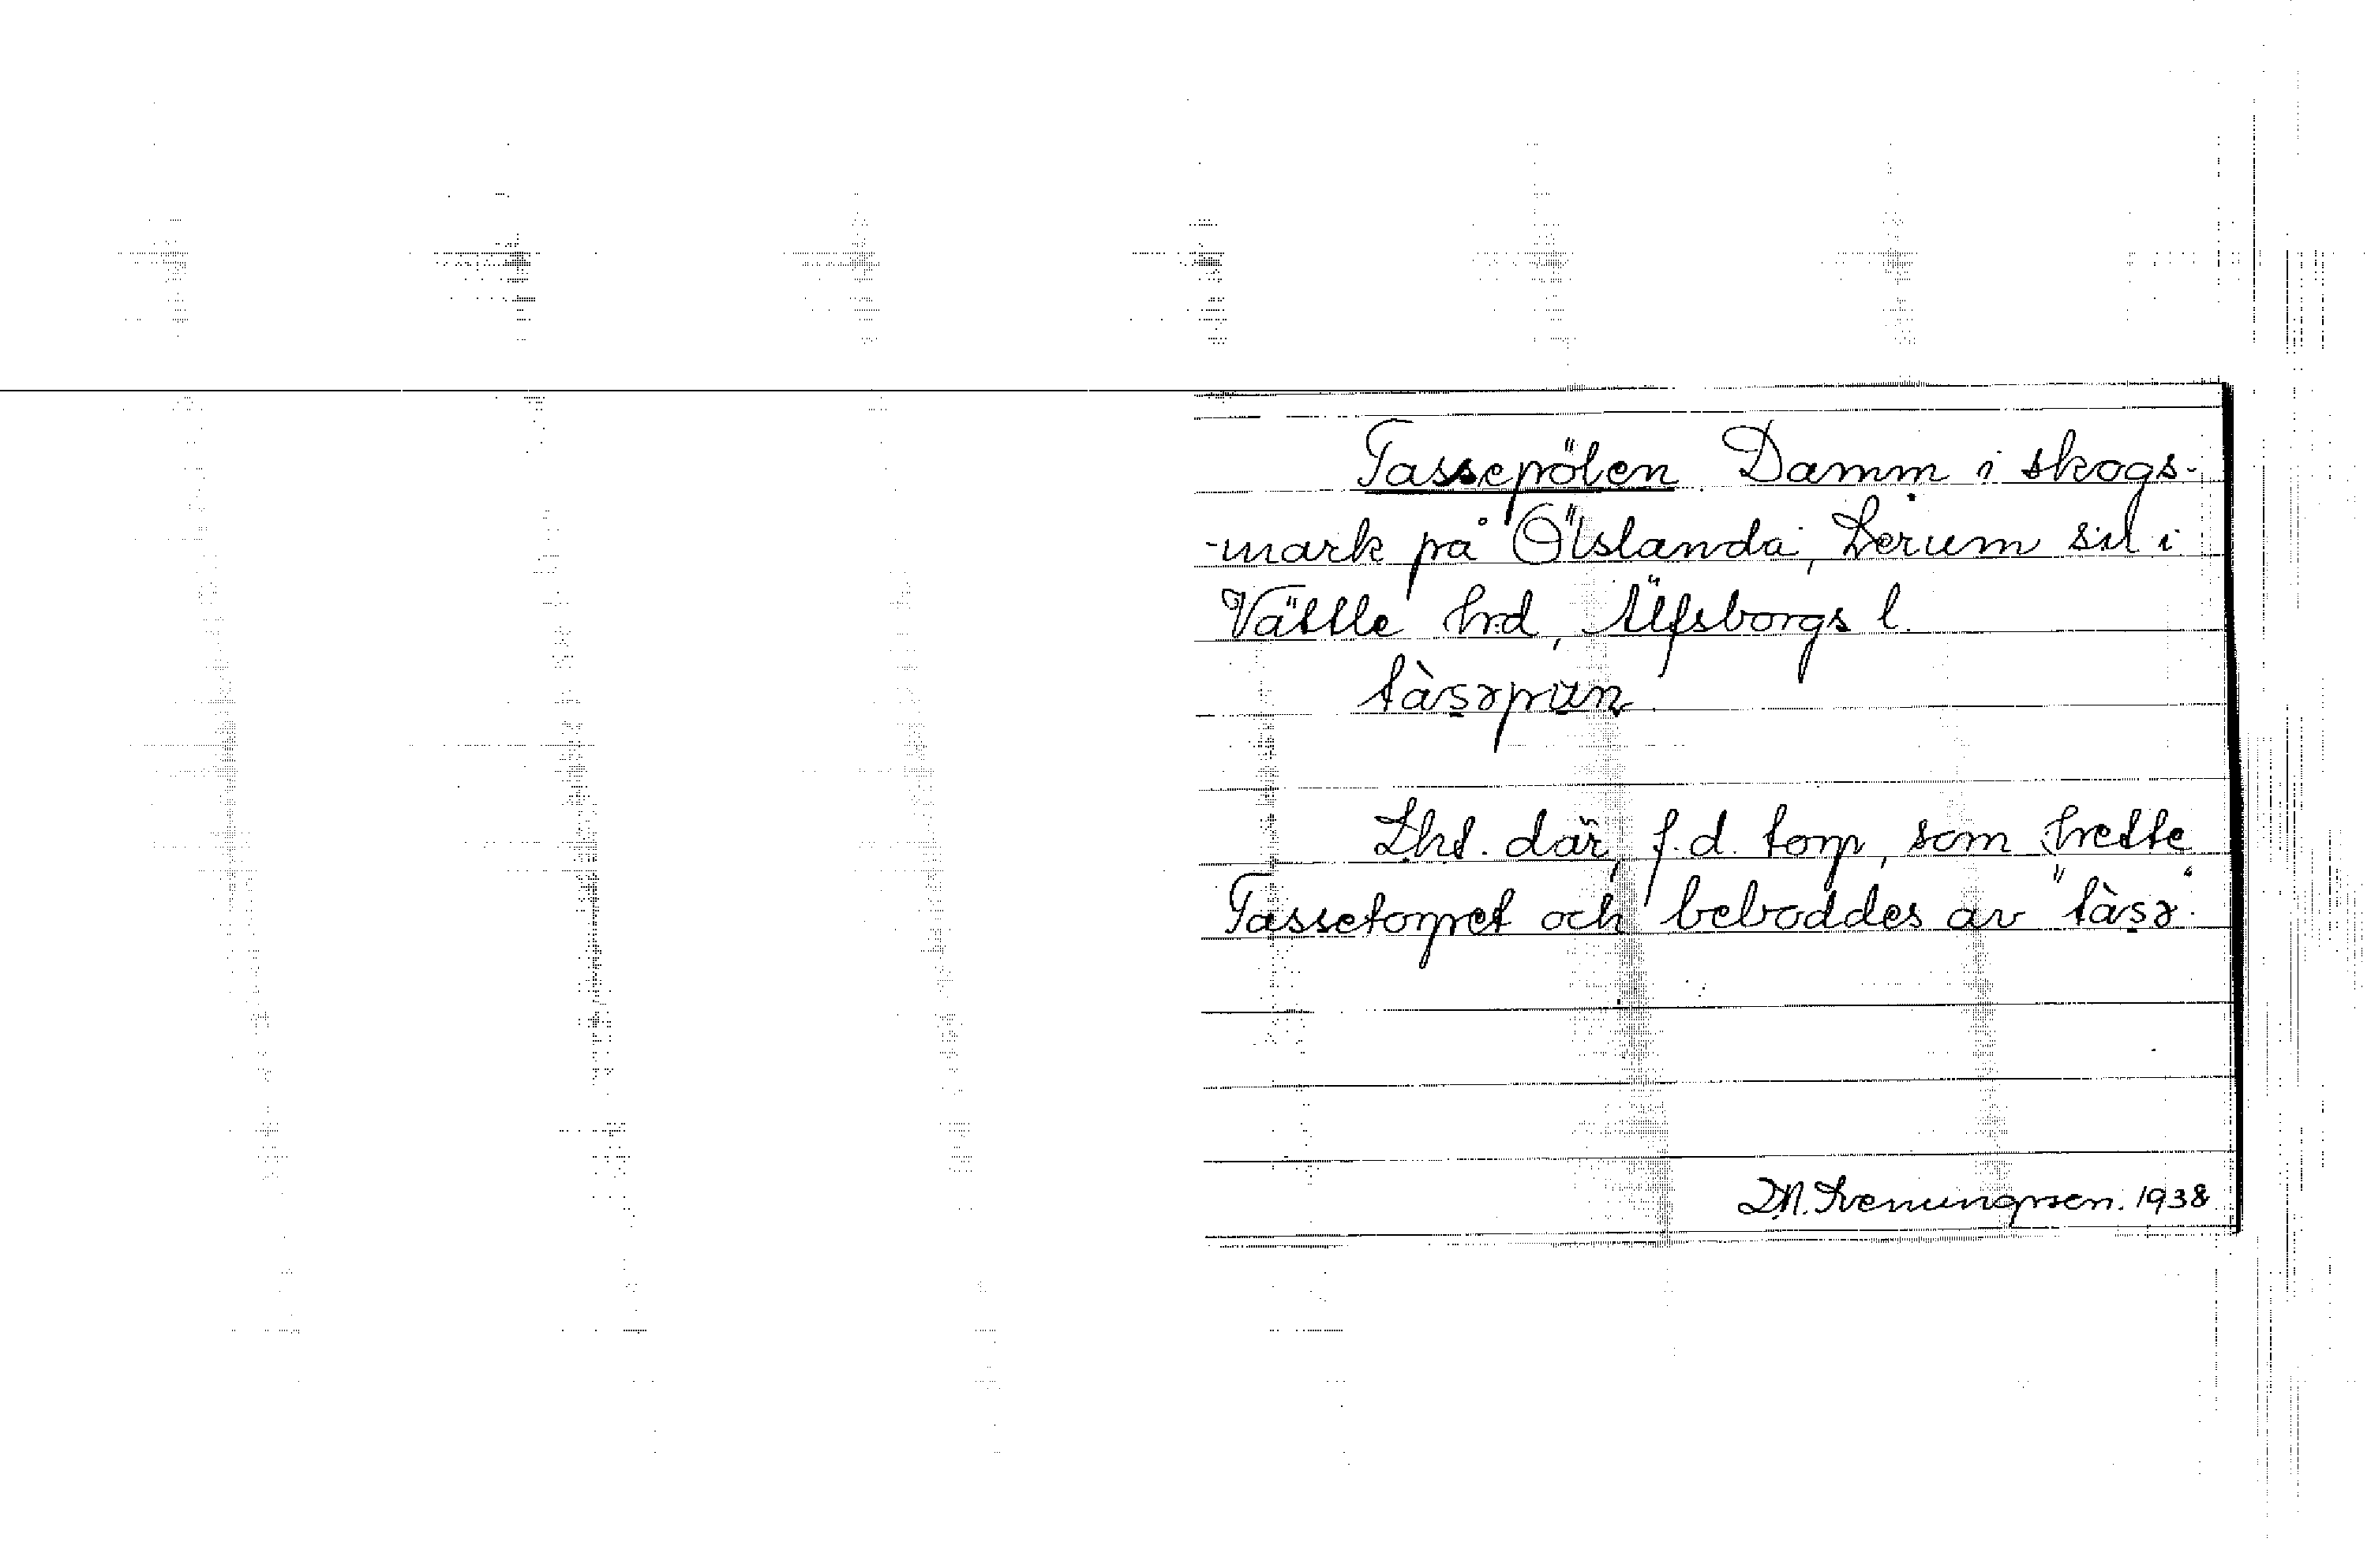 Tassepölen. Damm i skogs-
-mark på Ölslanda, Lerum sn i
Vättle hrd, Älfsborgs l.
tàsəpün
Lht. där, f.d. torp, som hette
Tassetorpet och beboddes av "tàsə".
D.N. Svenungsson. 1938